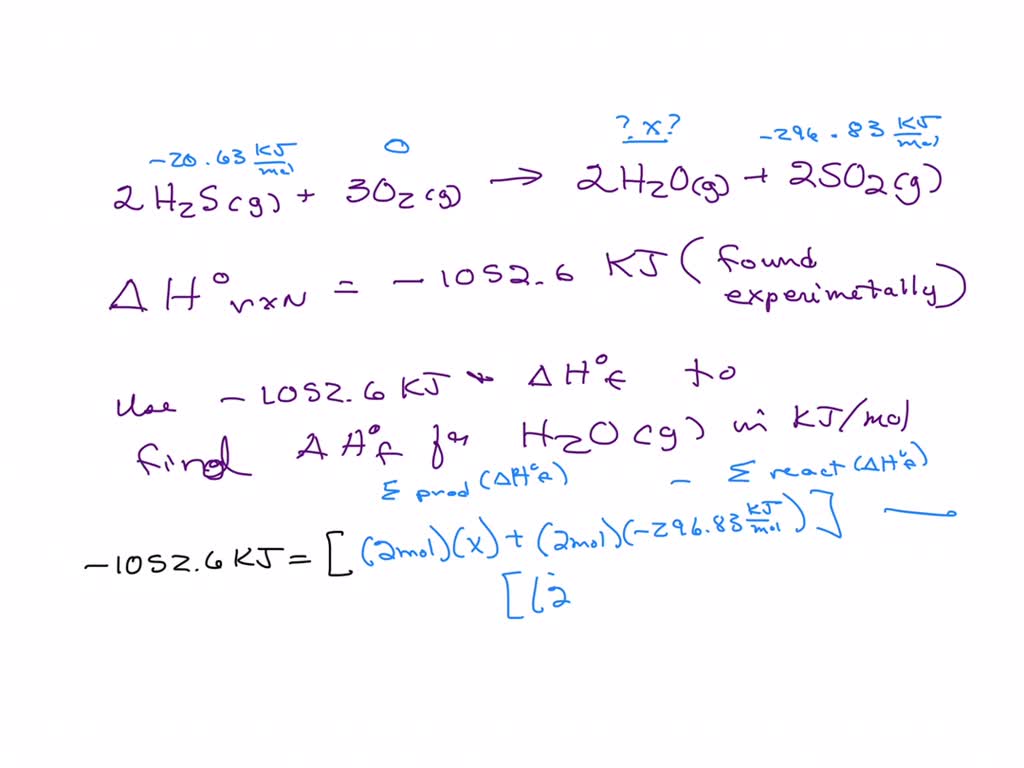 ? x ?
-20.63 KJ/mol 0 -296.83 KJ/mol
2H₂S(g) + 3O₂(g) → 2H₂O(g) + 2SO₂(g)
ΔH°rxn = -1052.6 KJ (found
experimetally)
Use -1052.6 KJ ΔH°f to
find ΔH°f for H₂O(g) in KJ/mol
Σ prod (ΔH°f) - Σ react (ΔH°f)
-1052.6 KJ = [(2mol)(x) + (2mol)(-296.83 KJ/mol)] —
[(2